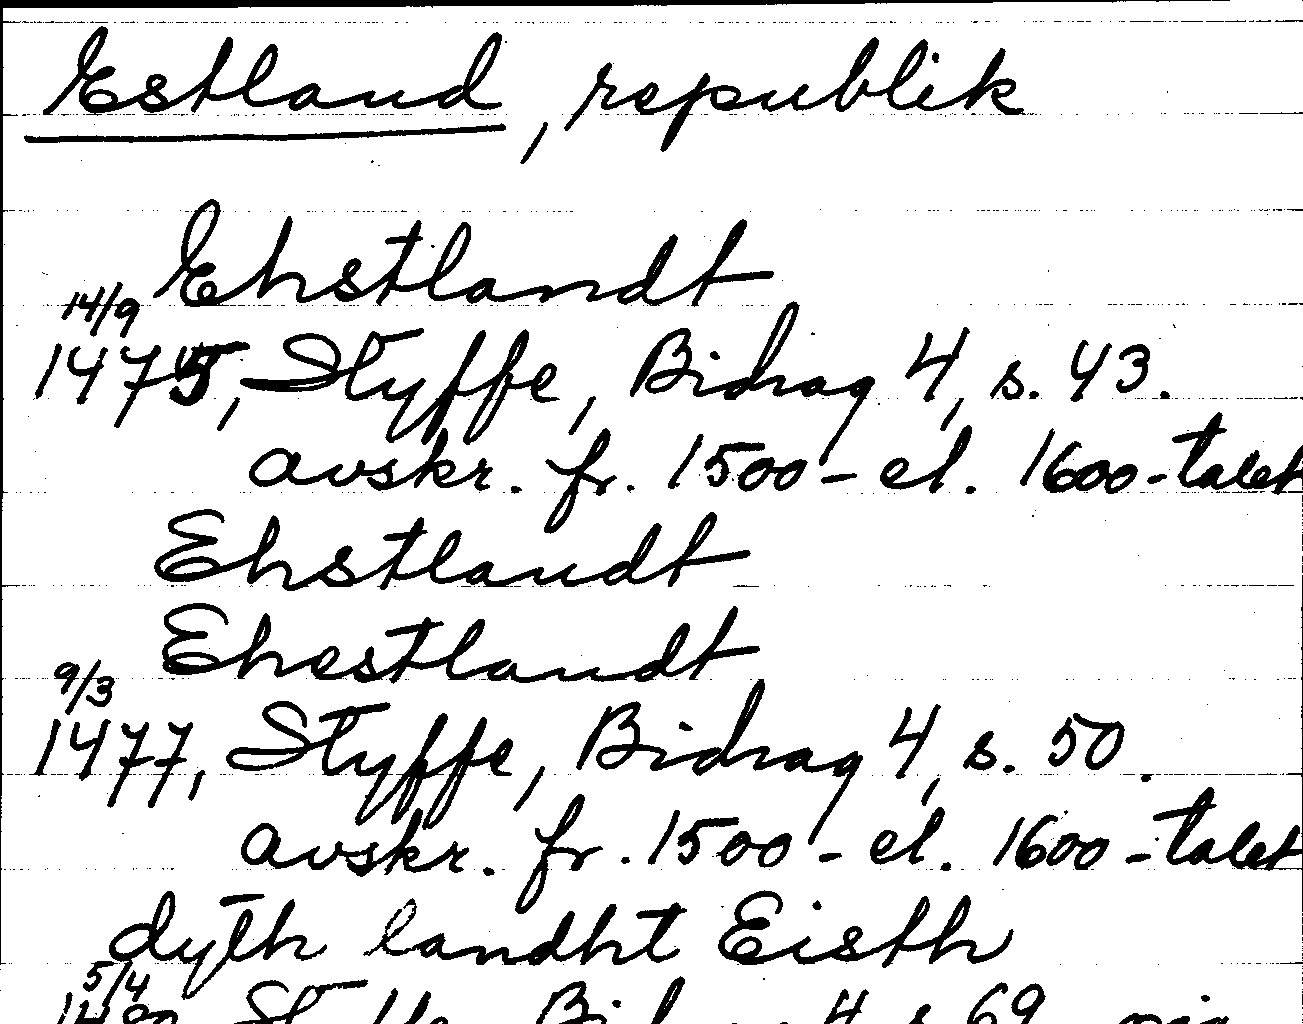 Estland, republik
Ehstlandt
14/9
1475, Styffe, Bidrag 4, s. 43.
avskr. fr. 1500- el. 1600-talet
Ehstlandt
Ehestlandt
9/3
1477, Styffe, Bidrag 4, s. 50.
avskr. fr. 1500- el. 1600-talet
dyth landht Eisth
5/4
Styffe, Bidrag 4 s 69